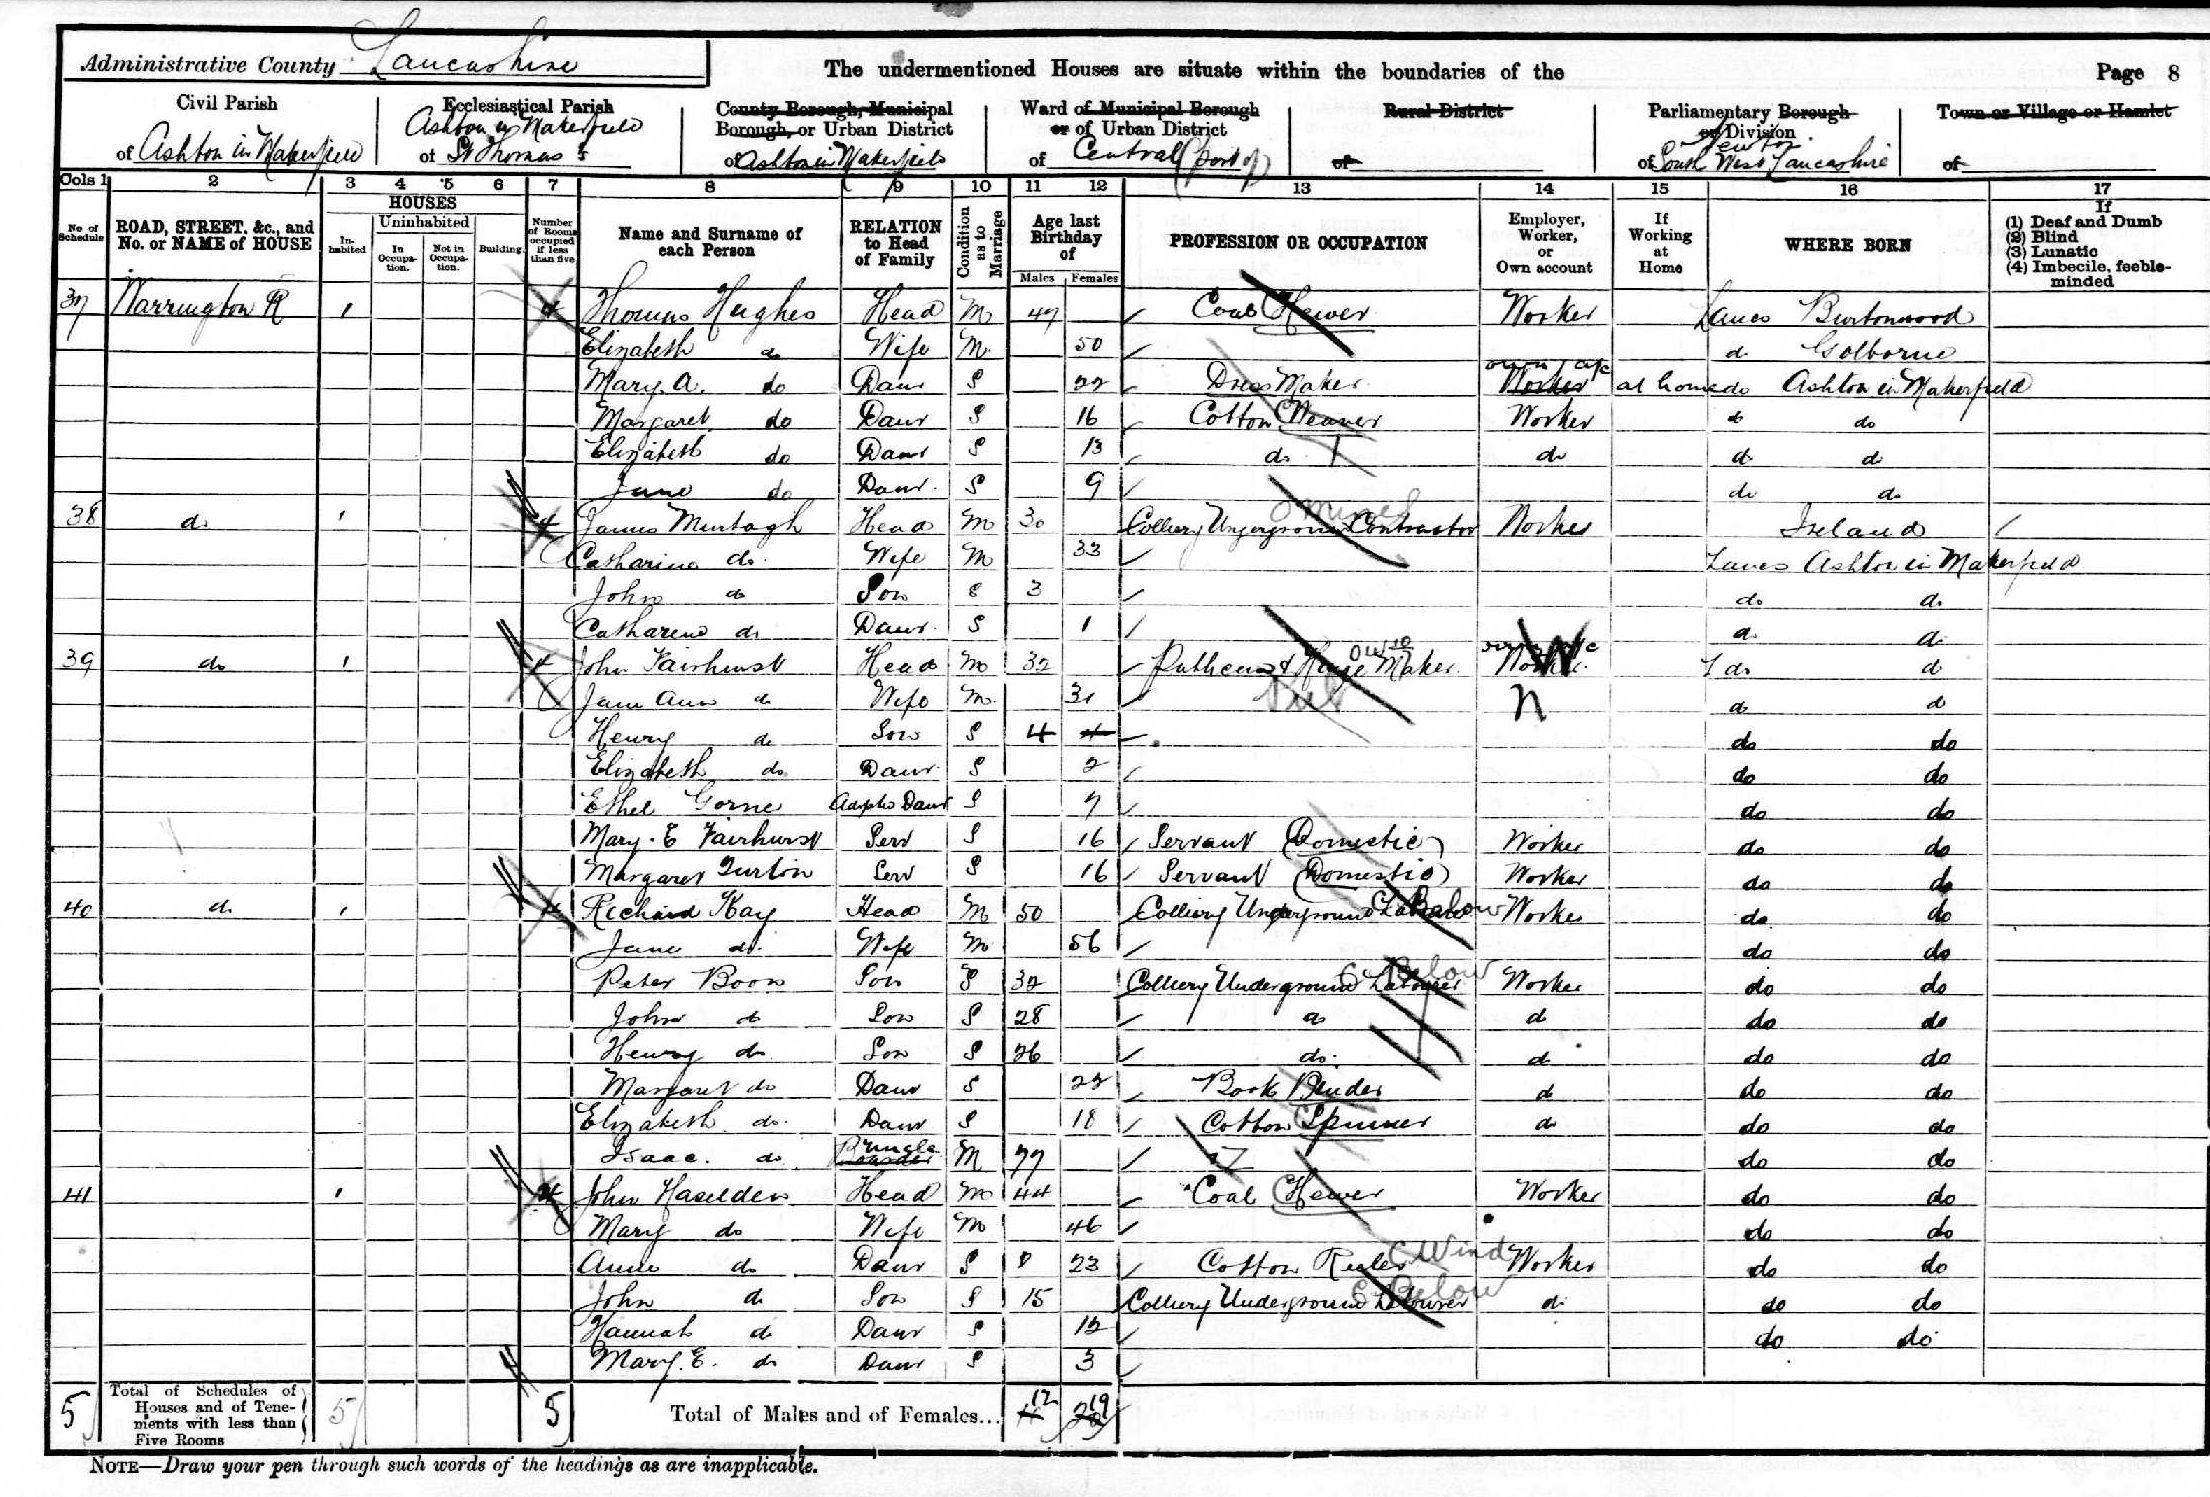 Administrative County Lancashire The undermentioned Houses are situate within the boundaries of the Page 8
Civil Parish of Ashton in Makerfield
Ecclesiastical Parish of Ashton in Makerfield St Thomas's
County Borough, Municipal Borough, or Urban District of Ashton in Makerfield
Ward of Municipal Borough or of Urban District of Central (part of)
Rural District of
Parliamentary Borough or Division of Newton South West Lancashire
Town or Village or Hamlet of
Cols 1 2 3 4 5 6 7 8 9 10 11 12 13 14 15 16 17
No of Schedule
ROAD, STREET, &c., and No. or NAME of HOUSE
HOUSES
Inhabited
Uninhabited
In Occupation.
Not in Occupation.
Building
Number of Rooms occupied if less than five
Name and Surname of each Person
RELATION to Head of Family
Condition as to Marriage
Age last Birthday of
Males Females
PROFESSION OR OCCUPATION
Employer, Worker, or Own account
If Working at Home
WHERE BORN
If
(1) Deaf and Dumb
(2) Blind
(3) Lunatic
(4) Imbecile, feeble-minded
37 Warrington R 1 4 Thomas Hughes Head M 47 Coal Hewer Worker Lancs Burtonwood
Elizabeth do Wife M 50 do Golborne
Mary. A. do Daur S 22 Dress Maker Worker own a/c at home do Ashton in Makerfield
Margaret do Daur S 16 Cotton Weaver Worker do do
Elizabeth do Daur S 13 do do do do
Jane do Daur S 9 do do
38 do 1 4 James Murtagh Head M 30 Colliery Underground Contractor Worker Ireland
Catharine do Wife M 33 Lancs Ashton in Makerfield
John do Son S 3 do do
Catharine do Daur S 1 do do
39 do 1 4 John Fairhurst Head M 32 Hinge Maker Worker do do
Jane Ann do Wife M 31 N do do
Henry do Son S 4 4 do do
Elizabeth do Daur S 2 do do
Ethel Gorne Adopted Daur S 7 do do
Mary. E Fairhurst Serv S 16 Servant (Domestic) Worker do do
Margaret Turton Serv S 16 Servant (Domestic) Worker do do
40 do 1 4 Richard Kay Head M 50 Colliery Underground Labourer Below Worker do do
Jane do Wife M 56 do do
Peter Boon Son S 32 Colliery Underground Labourer Below Worker do do
John do Son S 28 do do do do
Henry do Son S 26 do do do do
Margaret do Daur S 22 Book Binder do do do
Elizabeth do Daur S 18 Cotton Spinner do do do
Isaac. do Boarder Uncle M 77 do do
41 1 4 John Haselden Head M 44 Coal Hewer Worker do do
Mary do Wife M 46 do do
Anne do Daur S 23 Cotton Reeler Wind Worker do do
John do Son S 15 Colliery Underground Labourer Below do do do
Hannah do Daur S 12 do do
Mary. E. do Daur S 3
5 Total of Schedules of Houses and of Tenements with less than Five Rooms 5 5 Total of Males and of Females... 12 19
NOTE—Draw your pen through such words of the headings as are inapplicable.